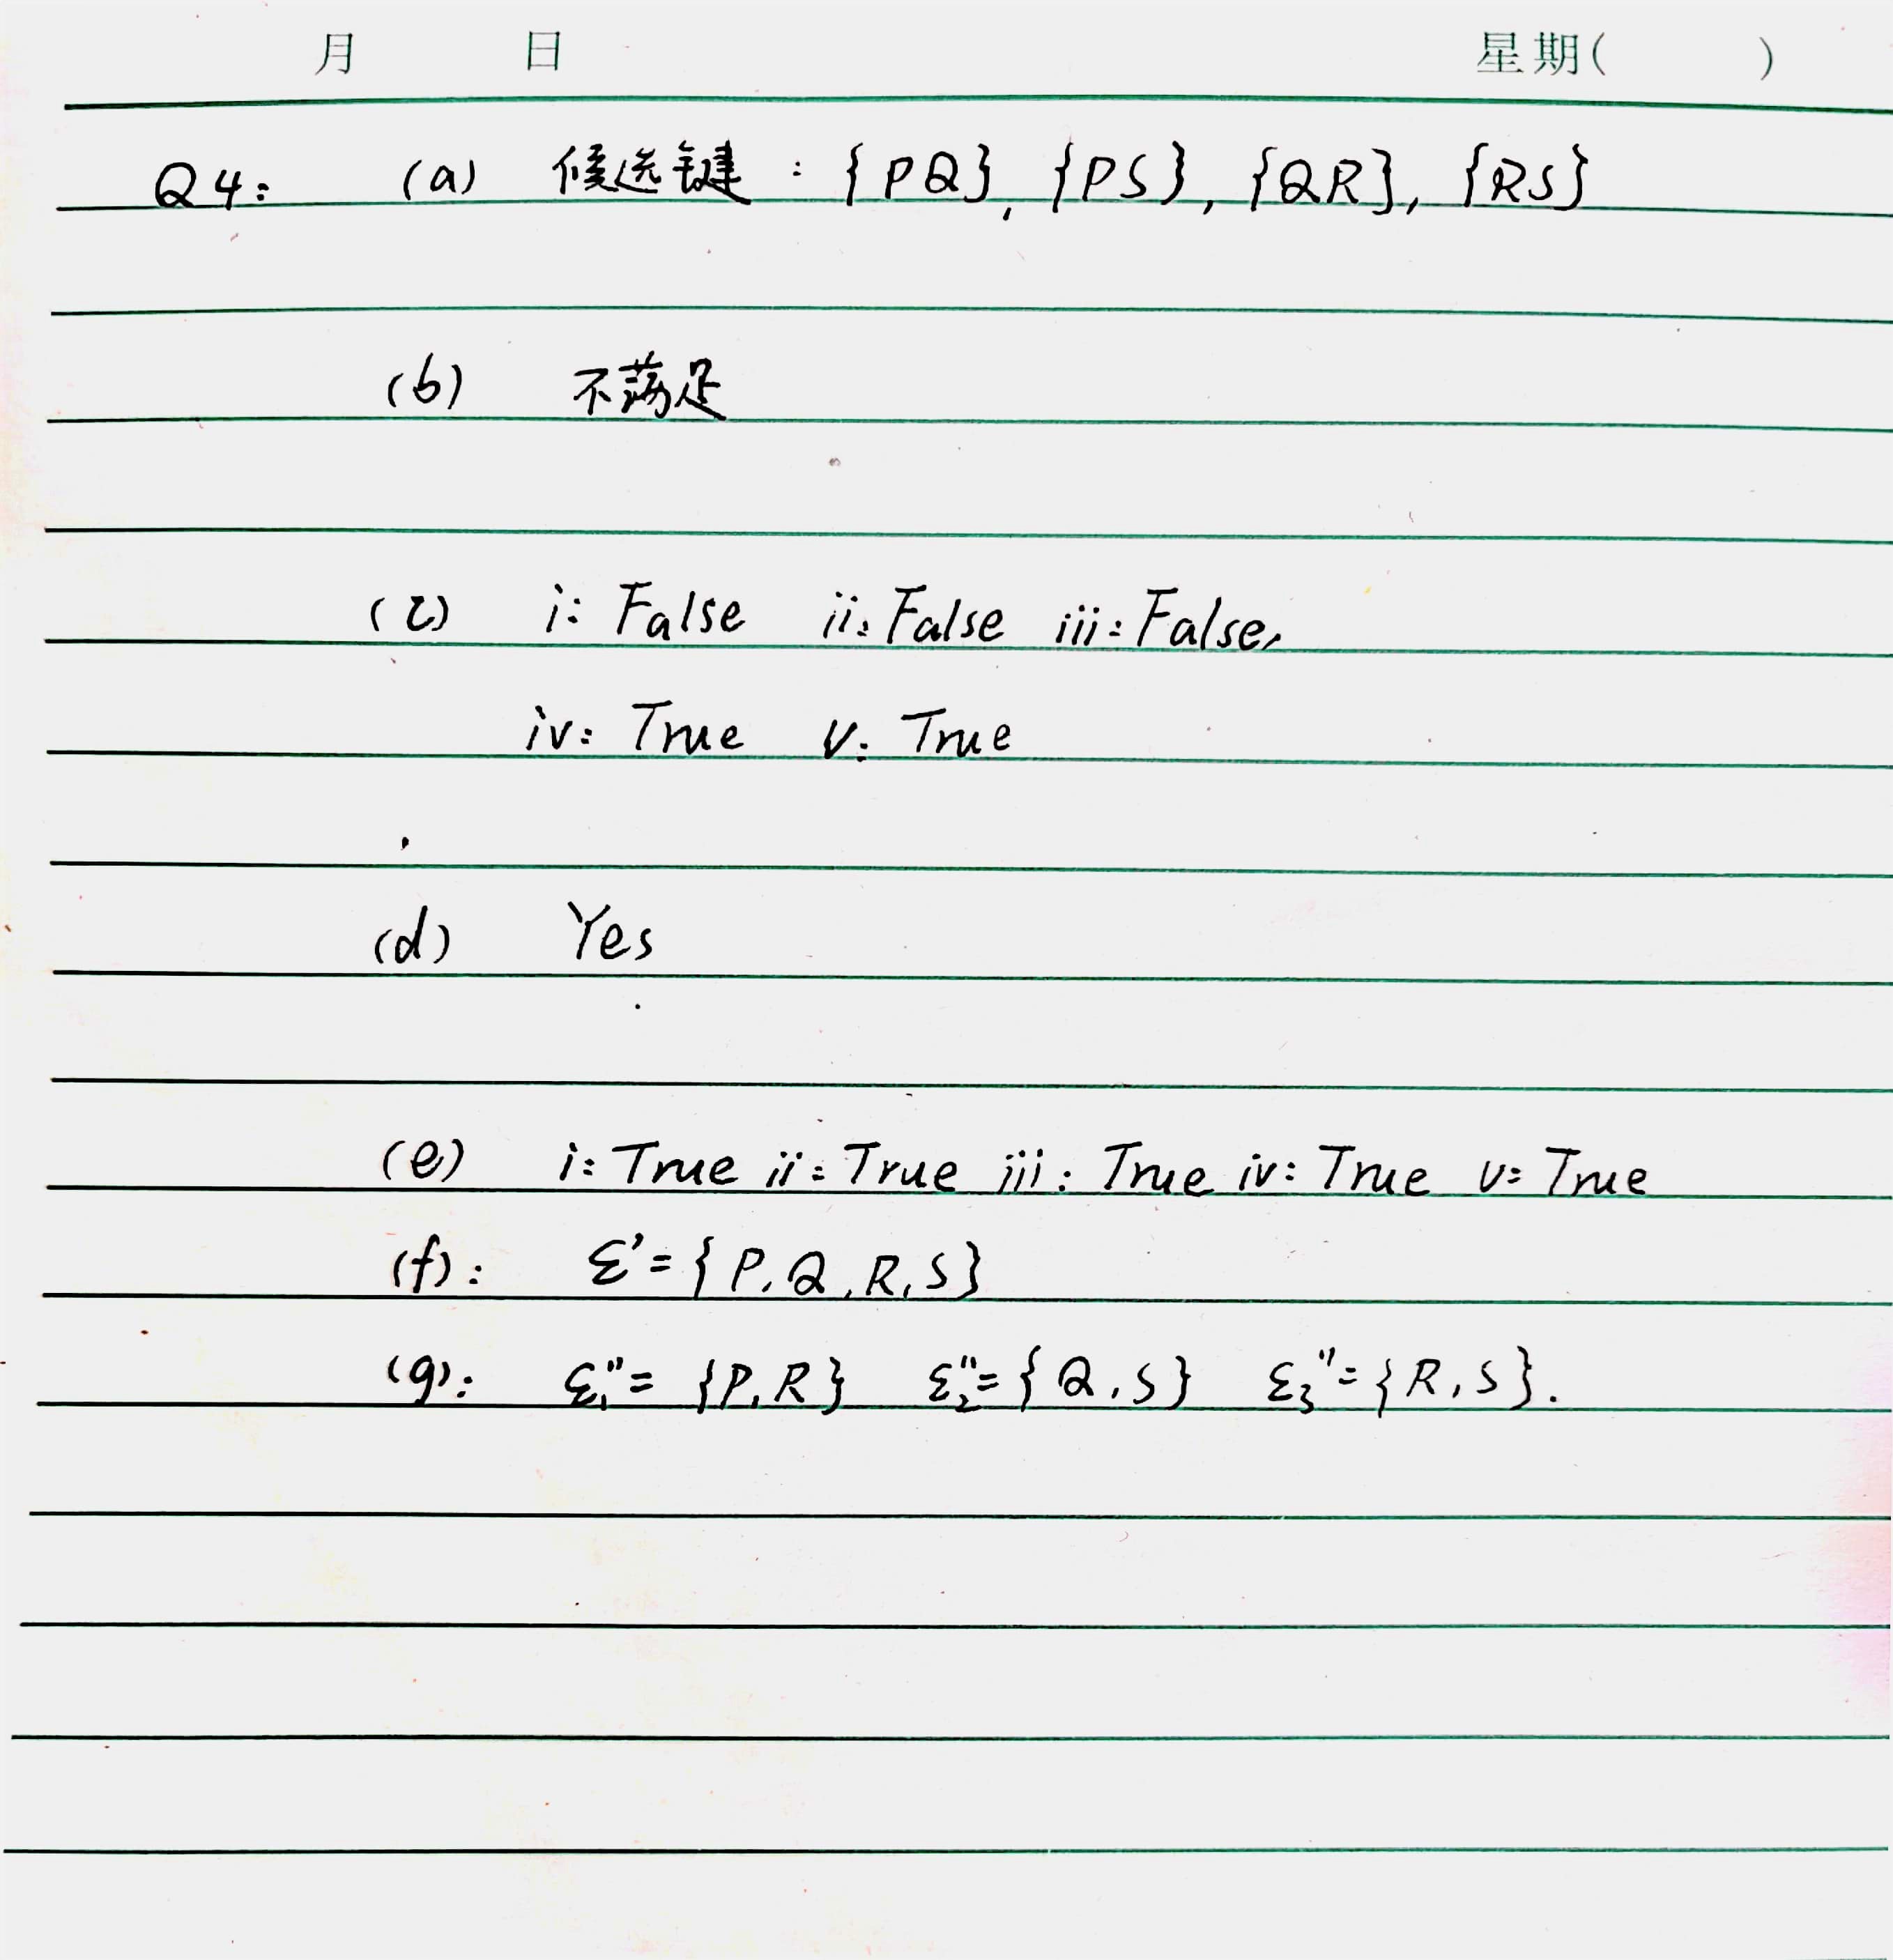 月 日 星期( )
Q4: (a) 候选键 : {PQ}, {PS}, {QR}, {RS}
(b) 不满足
(c) i: False ii: False iii: False,
iv: True v: True
(d) Yes
(e) i: True ii: True iii: True iv: True v: True
(f): Σ'={P,Q,R,S}
(g): Σ₁''= {P,R} Σ₂''={Q,S} Σ₃''={R,S}.